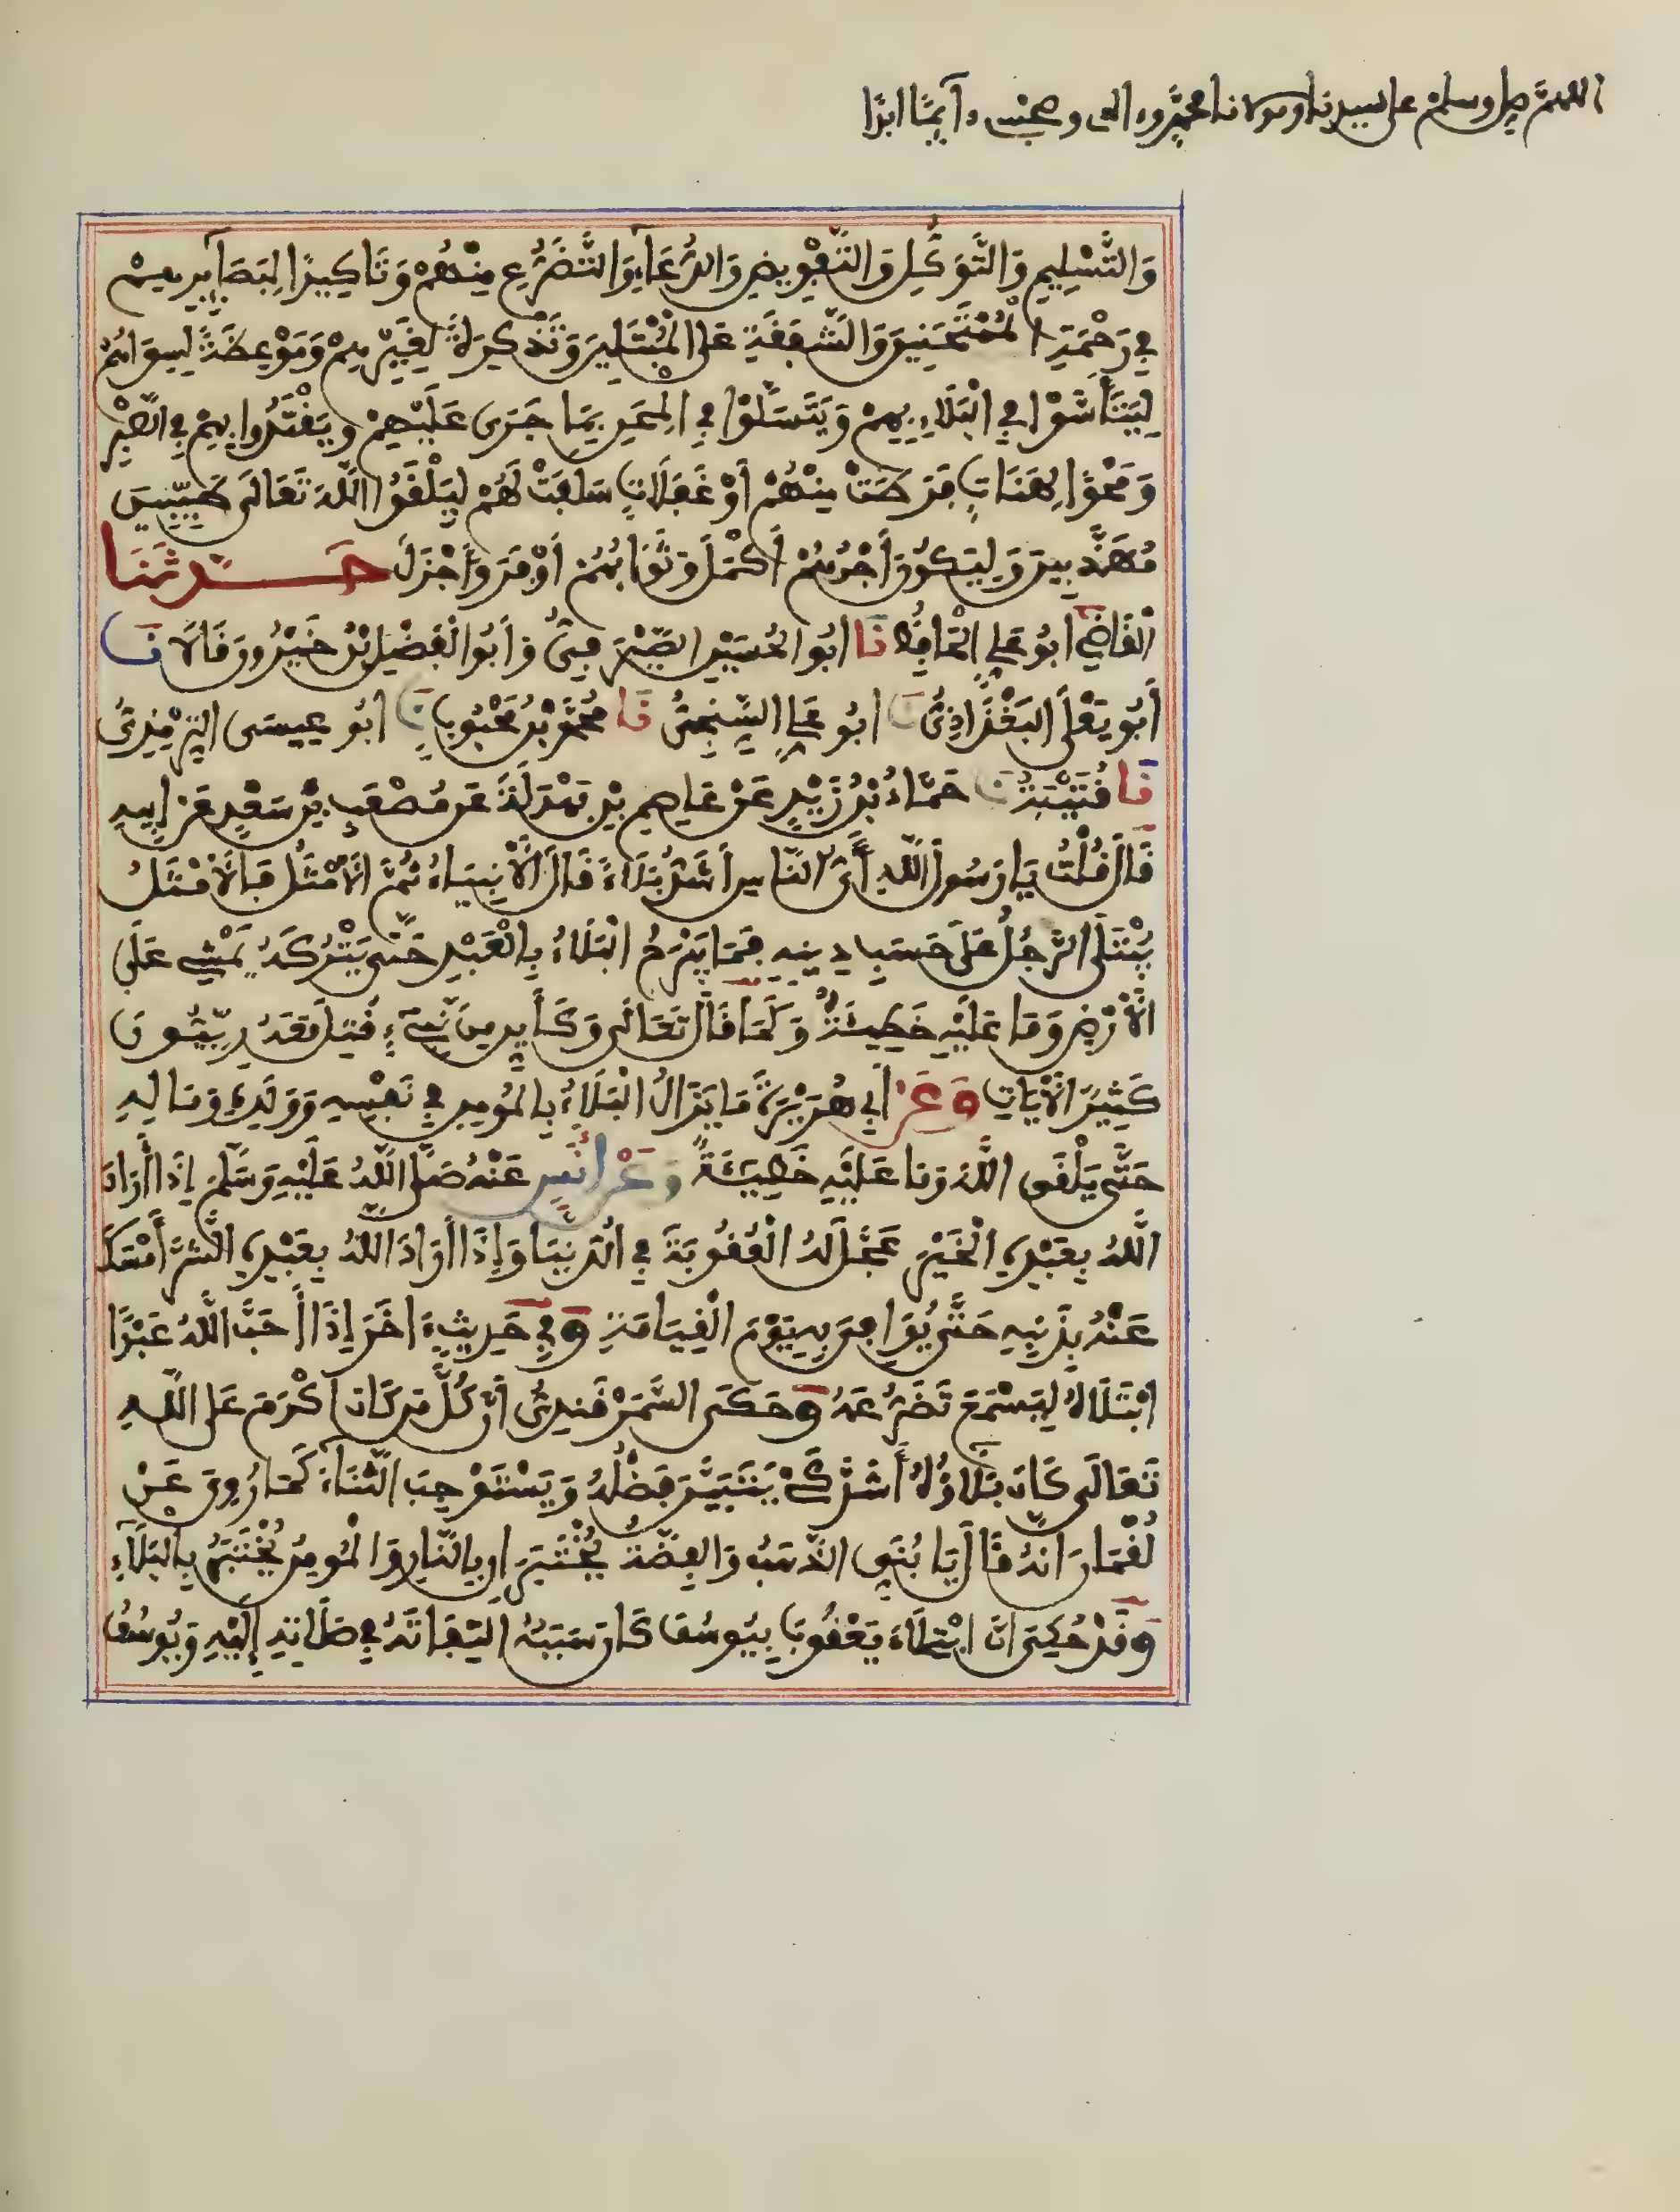 اللهم صل وسلم على سيدنا ومولانا محمد وءاله وصحبه دآيمًا ابدًا
وَالتَّسْلِيمِ وَالتَّوَكُّلِ وَالتَّفْوِيضِ وَالدُّعَاءِ وَالتَّضَرُّعِ مِنْهُمْ وَتَاكِيدًا لِبَصَآيِرِهِمْ
فِي رَحْمَةِ الْمُمْتَحَنِينَ وَالشَّفَقَةِ عَلَى الْمُبْتَلِينَ وَتَذْكِرَةً لِغَيْرِهِمْ وَمَوْعِظَةً لِسِوَاهُمْ
لِيَتَأَسَّوْا فِي الْبَلَاءِ بِهِمْ وَيَتَسَلَّوْا فِي الْمِحَنِ بِمَا جَرَى عَلَيْهِمْ وَيَقْتَدُوا بِهِمْ فِي الصَّبْرِ
وَمَحْوًا لِهَنَاتٍ فَرَطَتْ مِنْهُمْ أَوْ غَفَلَاتٍ سَلَفَتْ لَهُمْ لِيَلْقَوُا اللَّهَ تَعَالَى طَيِّبِينَ
مُهَذَّبِينَ وَلِيَكُونَ أَجْرُهُمْ أَكْمَلَ وَثَوَابُهُمْ أَوْفَرَ وَأَجْزَلَ حَدَّثَنَا
الْقَاضِي أَبُو عَلِي الْحَافِظُ نَا أَبُو الْحُسَيْنِ الصَّيْرَفِيُّ وَأَبُو الْفَضْلِ بْنُ خَيْرُونَ قَالَا نَا
أَبُو يَعْلَى الْبَغْدَاذِيُّ نَا أَبُو عَلِي السِّنْجِيُّ نَا مُحَمَّدُ بْنُ مَحْبُوبٍ نَا أَبُو عِيسَى التِّرْمِذِيُّ
نَا قُتَيْبَةُ نَا حَمَّادُ بْنُ زَيْدٍ عَنْ عَاصِمِ بْنِ بَهْدَلَةَ عَن مُصْعَبِ بْنِ سَعْدٍ عَن أَبِيهِ
قَالَ قُلْتُ يَا رَسُولَ اللَّهِ أَيُّ النَّاسِ أَشَدُّ بَلَاءً قَالَ الْأَنْبِيَاءُ ثُمَّ الْأَمْثَلُ فَالْأَمْثَلُ
يُبْتَلَى الرَّجُلُ عَلَى حَسَبِ دِينِهِ فَمَا يَبْرَحُ الْبَلَاءُ بِالْعَبْدِ حَتَّى يَتْرُكَهُ يَمْشِي عَلَى
الْأَرْضِ وَمَا عَلَيْهِ خَطِيئَةٌ وَكَمَا قَالَ تَعَالَى وَكَأَيِّن مِن نَّبِيءٍ قُتِلَ مَعَهُ رِبِّيُّونَ
كَثِيرٌ الْآيَاتِ وَعَنْ أَبِي هُرَيْرَةَ مَا يَزَالُ الْبَلَاءُ بِالْمُومِنِ فِي نَفْسِهِ وَوَلَدِهِ وَمَالِهِ
حَتَّى يَلْقَى اللَّهَ وَمَا عَلَيْهِ خَطِيئَةٌ وَعَنْ أَنَسٍ عَنْهُ صَلَّى اللَّهُ عَلَيْهِ وَسَلَّمَ إِذَا أَرَادَ
اللَّهُ بِعَبْدِهِ الْخَيْرَ عَجَّلَ لَهُ الْعُقُوبَةَ فِي الدُّنْيَا وَإِذَا أَرَادَ اللَّهُ بِعَبْدِهِ الشَّرَّ أَمْسَكَ
عَنْهُ بِذَنْبِهِ حَتَّى يُوَافِيَ بِهِ يَوْمَ الْقِيَامَةِ وَفِي حَدِيثٍ ءَاخَرَ إِذَا أَحَبَّ اللَّهُ عَبْدًا
ابْتَلَاهُ لِيَسْمَعَ تَضَرُّعَهُ وَحَكَى السَّمَرْقَنْدِيُّ أَنَّ كُلَّ مَن كَانَ أَكْرَمَ عَلَى اللَّهِ
تَعَالَى كَانَ بَلَاؤُهُ أَشَدَّ كَيْ يَتَبَيَّنَ فَضْلُهُ وَيَسْتَوْجِبَ الثَّنَاءَ كَمَا رُوِيَ عَنْ
لُقْمَانَ أَنَّهُ قَالَ يَا بُنَيِّ الذَّهَبُ وَالْفِضَّةُ يُخْتَبَرَانِ بِالنَّارِ وَالْمُومِنُ يُخْتَبَرُ بِالْبَلَاءِ
وَقَدْ حُكِيَ أَنَّ ابْتِلَاءَ يَعْقُوبَ بِيُوسُفَ كَانَ سَبَبُهُ الْتِفَاتَهُ فِي صَلَاتِهِ إِلَيْهِ وَيُوسُفُ